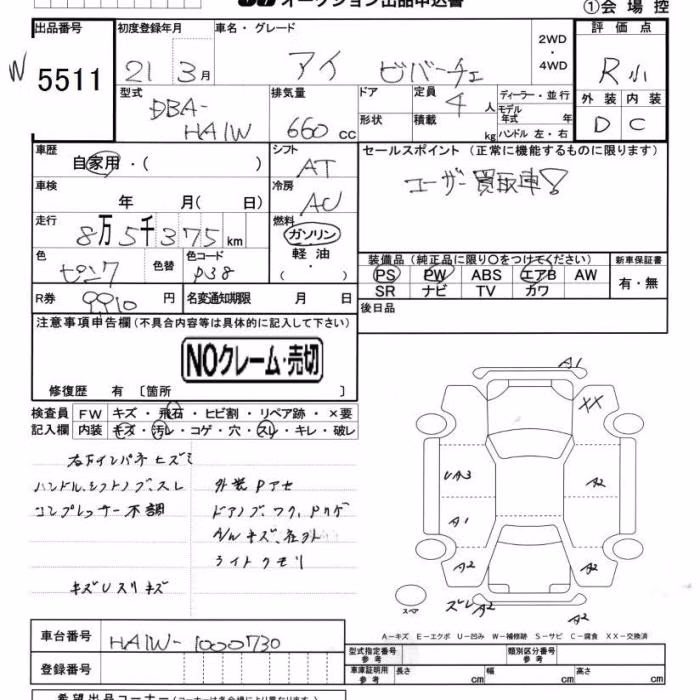 オークション出品申込書
①会場控
出品番号 初度登録年月 車名・グレード 2WD・4WD 評価点
W 5511 21 3月 アイ ビバーチェ R小
型式 排気量 ドア 定員 ディーラー・並行 外装 内装
DBA-HA1W 660cc 4人 モデル年式 年 D C
形状 積載 kg ハンドル 左・右
車歴 シフト セールスポイント (正常に機能するものに限ります)
自家用・( ) AT ユーザー買取車!
車検 冷房
年 月( 日) AC
走行 燃料
8万5千375km ガソリン
軽油
・( )
色 色替 色コード
ピンク P38
装備品(純正品に限り〇をつけてください) 新車保証書
PS PW ABS エアB AW 有・無
SR ナビ TV カワ
R券 9910円 名変通知期限 月 日 後日品
注意事項申告欄(不具合内容等は具体的に記入して下さい)
NOクレーム・売切
修復歴 有 [箇所 ]
検査員 FW キズ・飛石・ヒビ割・リペア跡・×要
記入欄 内装 キズ・汚レ・コゲ・穴・スレ・キレ・破レ
右下インパネヒズミ
ハンドル、シフトノブ、スレ 外装Pアセ
コンプレッサー不調 ドアノブ、フク、Pハゲ
A/Wキズ、社外
ライトクモリ
キズUスリキズ
A1
XX
UA3 A2
A1
A2 A2
スペ ズレA2 A2
A−キズ E−エクボ U−凹み W−補修跡 S−サビ C−腐食 XX−交換済
車台番号 HA1W-1000730
型式指定番号 参考 類別区分番号 参考
登録番号 車庫証明用 参考 長さ cm 幅 cm 高さ cm
希望出品コーナー(コーナーは各会場により異なります)